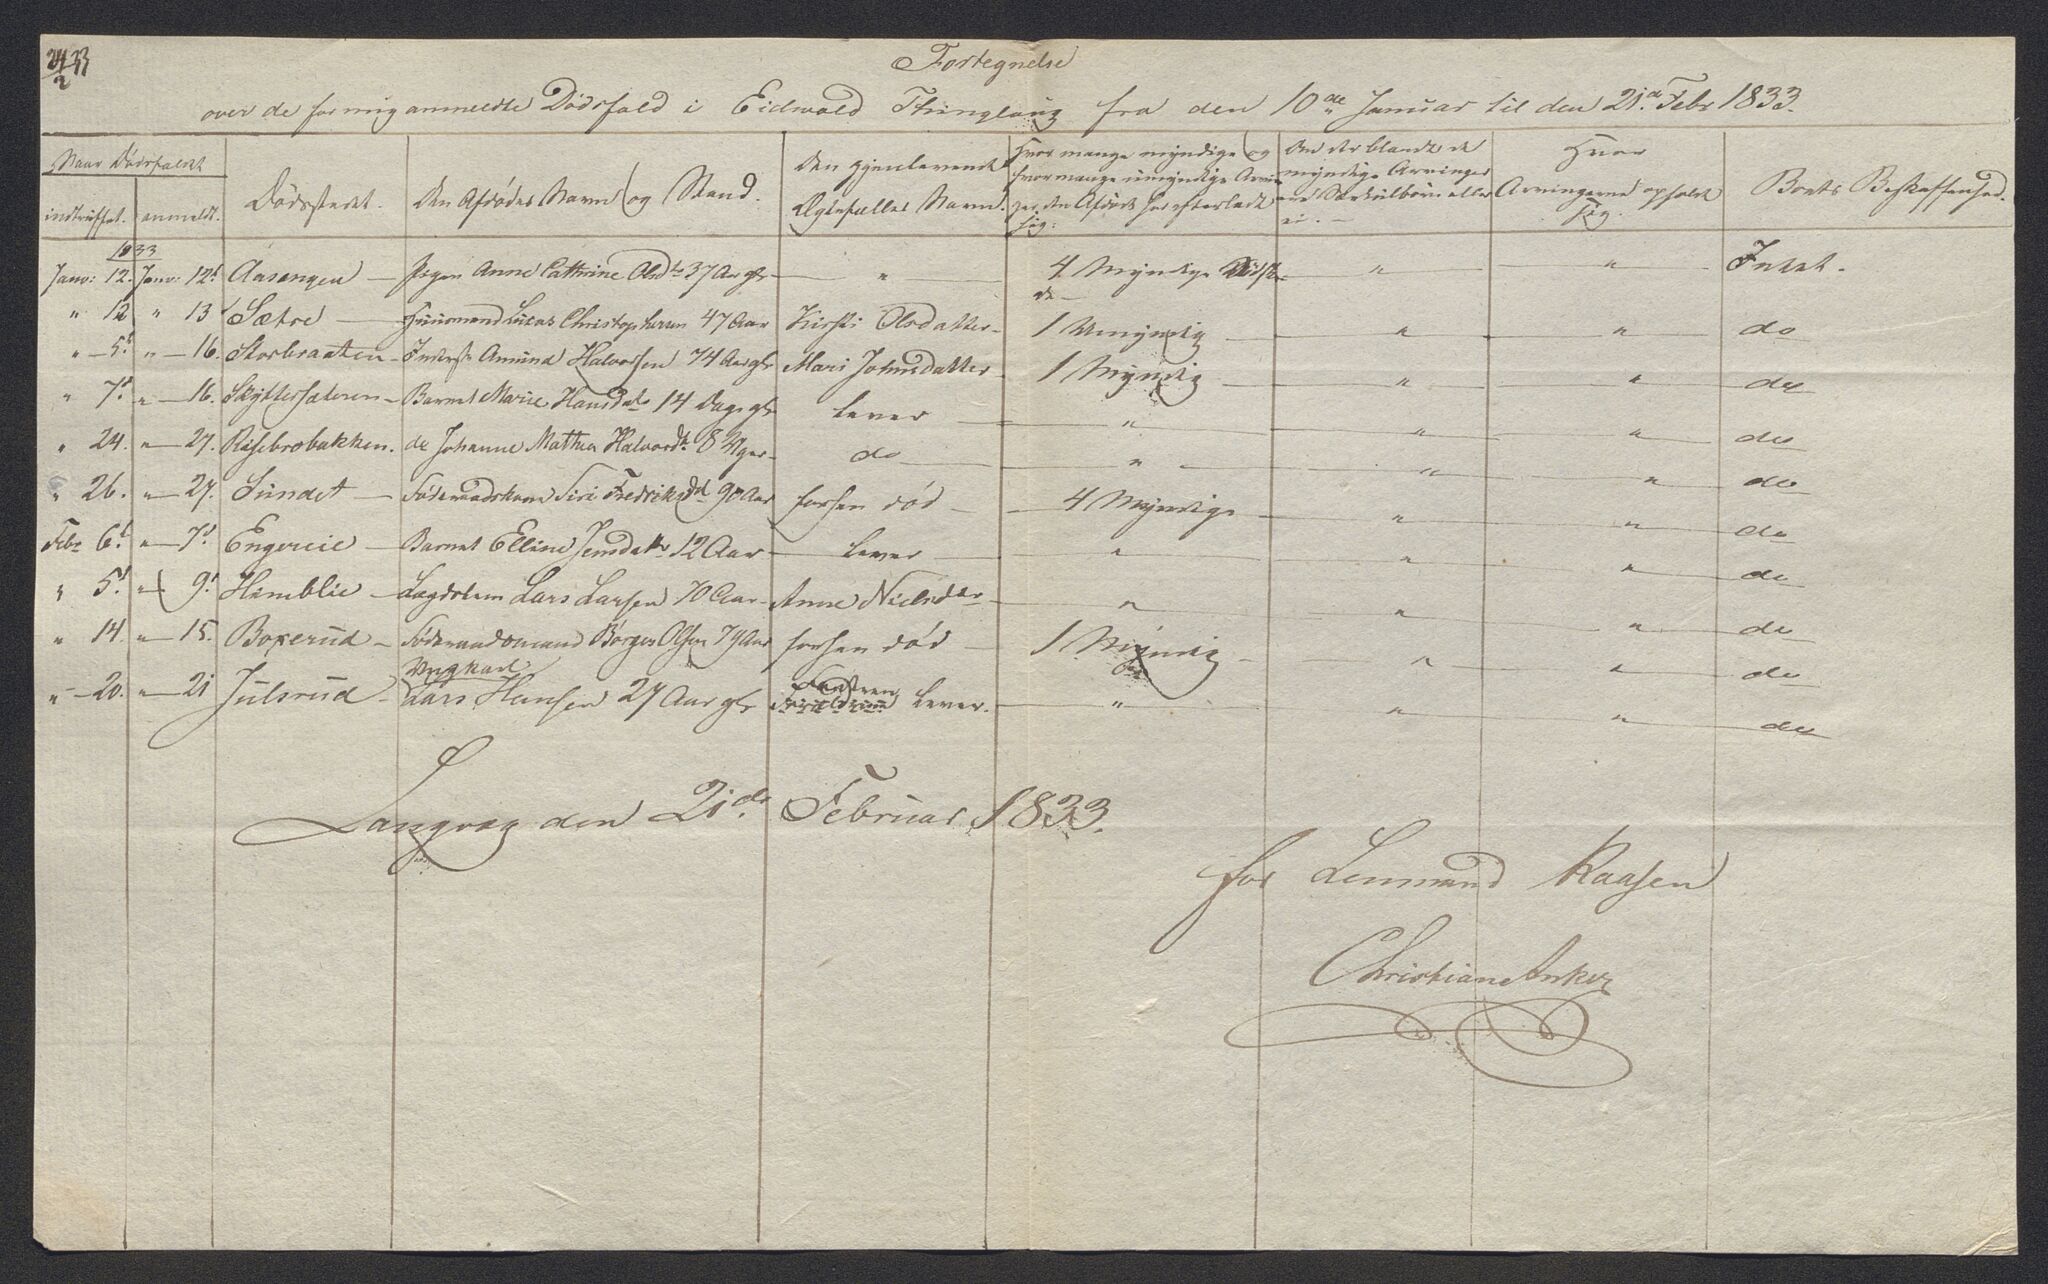 24/2 33
Fortegnelse
over de for mig anmeldte Dødsfald i Eidwold Thinglaug fra den 10de Januar til den 21de Febr 1833.
Naar Dødsfaldet
indtruffet. anmeldt. Dødsstedet. Den Afdødes Navn og Stand. Den gjenlevende Ægtefælles Navn. Hvor mange myndige og hvor mange umyndige Arvinger den Afdøde har efterladt sig: Om der blandt de myndige Arvinger ere Særkulbörn eller ei. Hvor Arvingerne opholde sig. Boets Beskaffenhed.
1833
Janv: 12. Janv: 12t Aasengen — Pigen Anne Cathrine Olsdtr 37 Aar gl. — " — 4 Myndige Södskende — " " Intet.
" 12 " 13 Sætre — Huusmand Lucas Christophersen 47 Aar Kirsti Olsdatter — 1 Umyndig — " " do
" 5t " 16. Storbraaten — Inderst Amund Halvorsen 74 Aar gl. Mari Johnsdatter 1 Myndig — " " do
" 7d " 16. Skyttersæteren — Barnet Marie Hansdatr 14 Dage gl. lever " " " do
" 24. " 27. Risebrobakken. do Johanne Mathea Halvordtr 8 Uger — do " " " do
" 26. " 27. Sundet — Föderaadskone Siri Fredriksdtr 90 Aar forhen död — 4 Myndige " " do
Febr 6t " 7d Engereie — Barnet Elline Jensdatr 12 Aar — lever " " " do
" 5t " 9d Himblie — Lægdslem Lars Larsen 70 Aar — Anne Nielsdtr — " " " do
" 14. " 15. Boxerud — Föderaadsmand Börger Olsen 79 Aar forhen död — 1 Myndig — " " do
" 20. " 21 Julsrud — Ungkarl Lars Hansen 27 Aar gl. lever. " " " do
Langvag den 21de Februar 1833.
for Lensmand Raasen
Christiane Anker